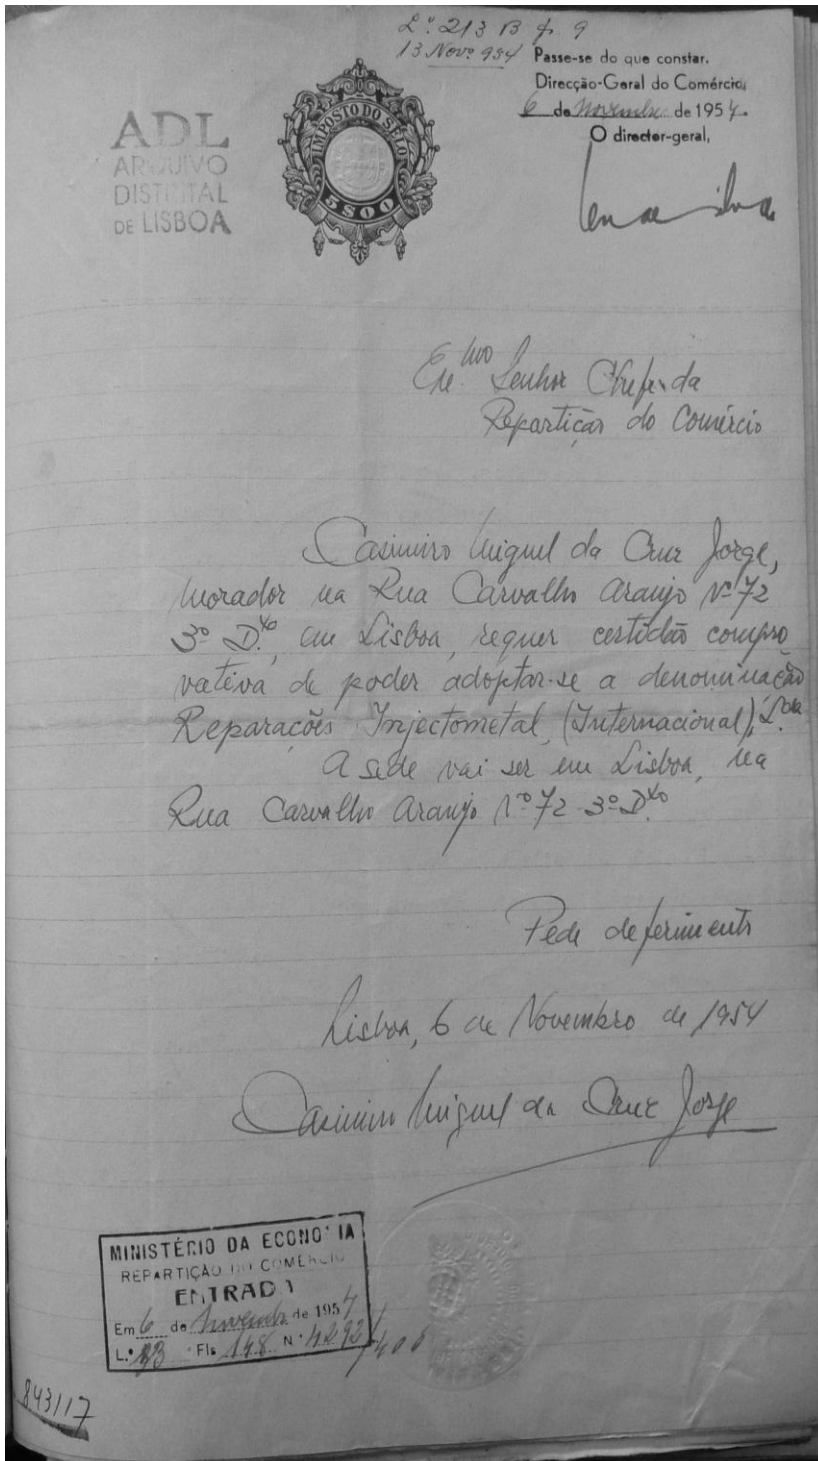 L.º 213 B f. 9
13 Novº 954
Passe-se do que constar.
Direcção-Geral do Comércio,
6 de Novembro de 1954.
O director-geral,
ADL
ARQUIVO
DISTRITAL
DE LISBOA
IMPOSTO DO SELO
5$00
Exe.mo Senhor Chefe da
Repartição do Comércio
Casimiro Miguel da Cruz Jorge,
morador na Rua Carvalho Araujo Nº 72
3º D.to, em Lisboa, requer certidão compro
vativa de poder adoptar-se a denominação
Reparações Injectometal, (Internacional), L.da
A sede vai ser em Lisboa, na
Rua Carvalho Araujo Nº 72-3º D.to
Pede deferimento
Lisboa, 6 de Novembro de 1954
Casimiro Miguel da Cruz Jorge
MINISTÉRIO DA ECONOMIA
REPARTIÇÃO DO COMÉRCIO
ENTRADA
Em 6 de Novembro de 1954
L.º Fls 148 N.º 4292
843117